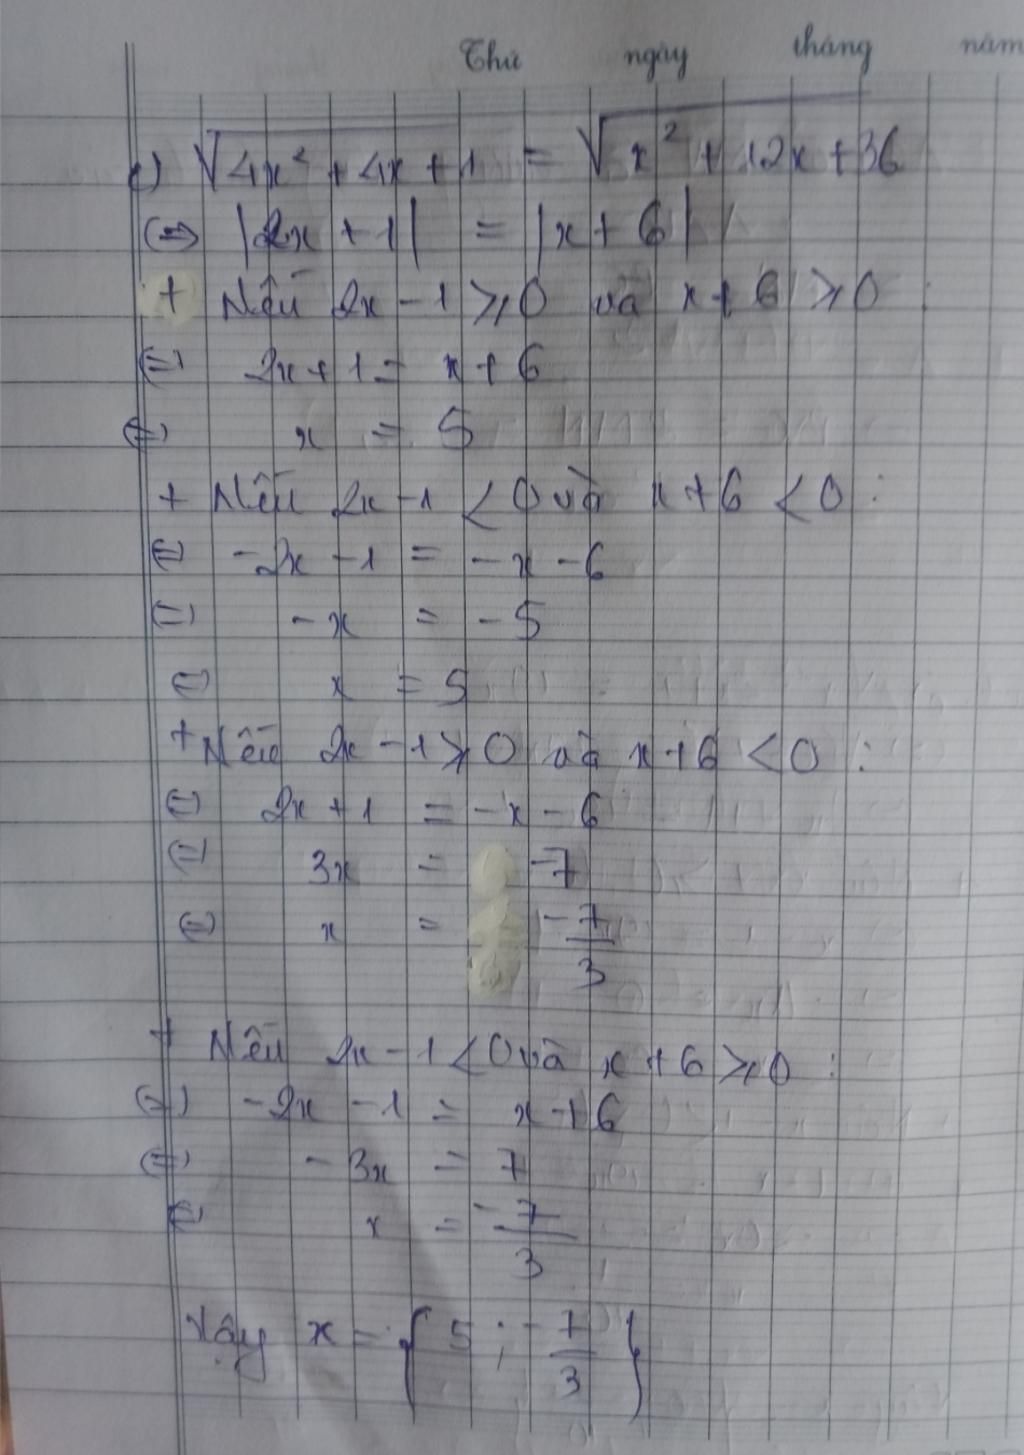 Thứ ngày tháng năm
c) √(4x² + 4x + 1) = √(x² + 12x + 36)
(⇔) |2x + 1| = |x + 6|
+ Nếu 2x - 1 ≥ 0 và x + 6 ≥ 0 :
(=) 2x + 1 = x + 6
(=) x = 5
+ Nếu 2x - 1 < 0 và x + 6 < 0 :
(=) -2x - 1 = -x - 6
(=) -x = -5
(=) x = 5
+ Nếu 2x - 1 ≥ 0 và x + 6 < 0 :
(=) 2x + 1 = -x - 6
(=) 3x = -7
(=) x = -7/3
+ Nếu 2x - 1 < 0 và x + 6 ≥ 0 :
(=) -2x - 1 = x + 6
(=) -3x = 7
(=) x = -7/3
Vậy x = { 5 ; -7/3 }